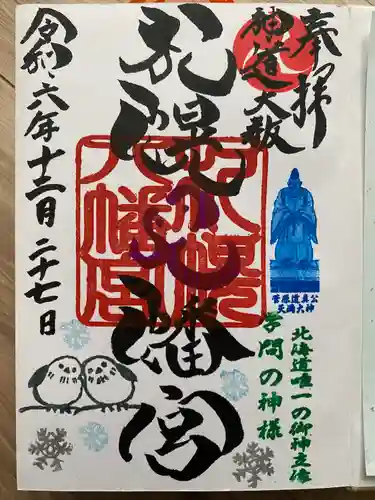 奉拝
神道大教
札幌八幡宮
札幌八幡宮
菅原道真公
天満大神
北海道唯一の
学問の神様
令和六年十二月二十七日